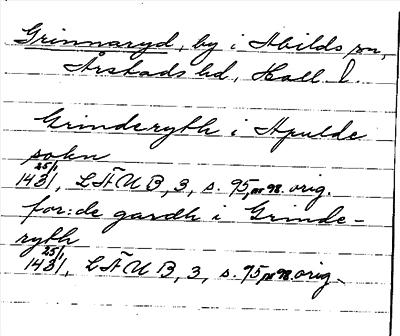 Grinnaryd, by i Abilds sn,
Årstads hd, Hall. l.
Grinderyth i Apulde
sokn
25/1 1431, LÄUB, 3, s. 95, nr 98. orig.
for:de gardh i Grinde-
ryth
25/1 1431, LÄUB, 3, s. 95, nr 98 orig.